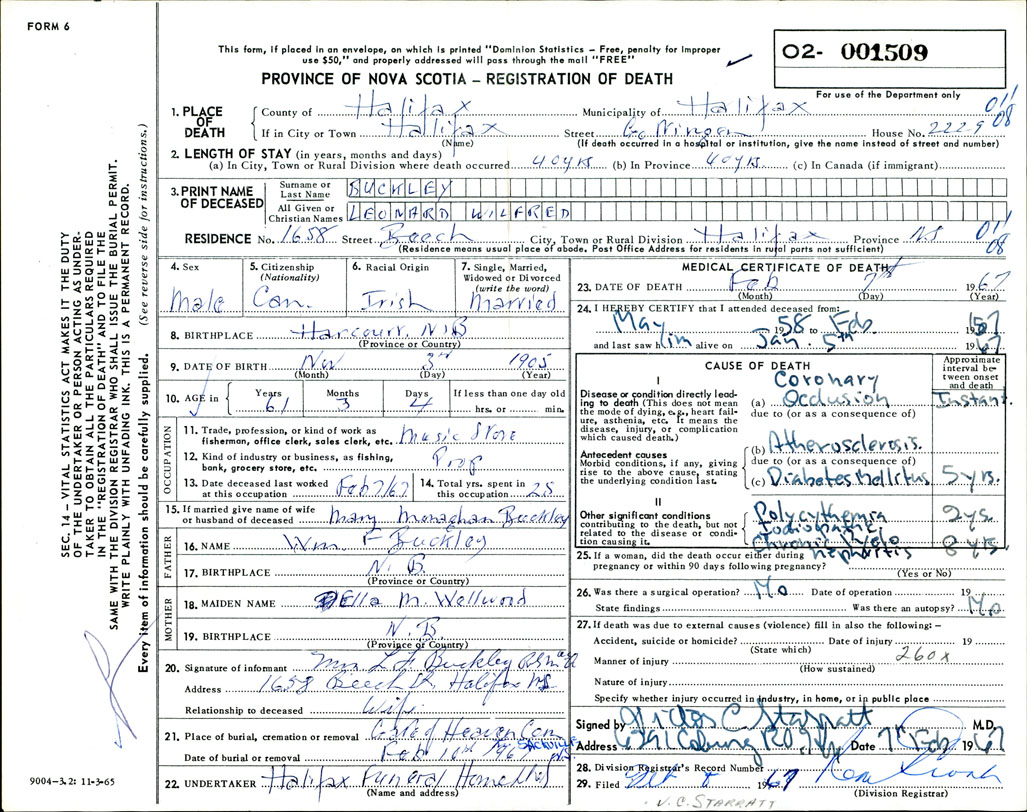 FORM 6
This form, if placed in an envelope, on which is printed "Dominion Statistics – Free, penalty for improper
use $50," and properly addressed will pass through the mail "FREE"
O2- 001509
PROVINCE OF NOVA SCOTIA – REGISTRATION OF DEATH
For use of the Department only
1. PLACE OF DEATH
County of Halifax Municipality of Halifax
011
08
If in City or Town Halifax Street House No. 2229
(Name) (If death occurred in a hospital or institution, give the name instead of street and number)
2. LENGTH OF STAY (in years, months and days)
(a) In City, Town or Rural Division where death occurred 40 yrs (b) In Province 40 yrs (c) In Canada (if immigrant)
3. PRINT NAME OF DECEASED
Surname or Last Name BUCKLEY
All Given or Christian Names LEONARD WILFRED
RESIDENCE No. 1658 Street Beech City, Town or Rural Division Halifax Province NS
011
08
(Residence means usual place of abode. Post Office Address for residents in rural parts not sufficient)
4. Sex
Male
5. Citizenship
(Nationality)
Can.
6. Racial Origin
Irish
7. Single, Married,
Widowed or Divorced
(write the word)
Married
8. BIRTHPLACE Harcourt, N.B
(Province or Country)
9. DATE OF BIRTH Nov 3rd 1905
(Month) (Day) (Year)
10. AGE in Years 61 Months 3 Days 4 If less than one day old
hrs. or min.
OCCUPATION
11. Trade, profession, or kind of work as
fisherman, office clerk, sales clerk, etc. Music Store
12. Kind of industry or business, as fishing,
bank, grocery store, etc. Prop
13. Date deceased last worked
at this occupation Feb 7/67
14. Total yrs. spent in
this occupation 25
15. If married give name of wife
or husband of deceased Mary Monaghan Buckley
FATHER
16. NAME Wm. F Buckley
17. BIRTHPLACE N.B.
(Province or Country)
MOTHER
18. MAIDEN NAME Ella M. Wellwood
19. BIRTHPLACE N.B.
(Province or Country)
20. Signature of informant Mrs L F Buckley
Address 1658 Beech St, Halifax NS
Relationship to deceased Wife
21. Place of burial, cremation or removal Gate of Heaven Cem
SACKVILLE
NS.
Date of burial or removal Feb 10th /67
22. UNDERTAKER Halifax Funeral Home Ltd
(Name and address)
MEDICAL CERTIFICATE OF DEATH
23. DATE OF DEATH Feb 7th 1967
(Month) (Day) (Year)
24. I HEREBY CERTIFY that I attended deceased from:
May 1958 to Feb 1967
and last saw him alive on Jan. 5th 1967
CAUSE OF DEATH
Approximate
interval be-
tween onset
and death
I
Disease or condition directly lead-
ing to death (This does not mean
the mode of dying, e.g., heart fail-
ure, asthenia, etc. It means the
disease, injury, or complication
which caused death.)
Coronary
(a) Occlusion Instant.
due to (or as a consequence of)
Antecedent causes
Morbid conditions, if any, giving
rise to the above cause, stating
the underlying condition last.
(b) Atherosclerosis.
due to (or as a consequence of)
(c) Diabetes Mellitus 5 yrs.
II
Other significant conditions
contributing to the death, but not
related to the disease or condi-
tion causing it.
Polycythemia 2 ys.
Idiopathic,
Chronic Pyelo 8 yrs.
nephritis
25. If a woman, did the death occur either during
pregnancy or within 90 days following pregnancy?
(Yes or No)
26. Was there a surgical operation? No Date of operation 19
State findings Was there an autopsy? No
27. If death was due to external causes (violence) fill in also the following: –
Accident, suicide or homicide? Date of injury 19
(State which)
260X
Manner of injury
(How sustained)
Nature of injury
Specify whether injury occurred in industry, in home, or in public place
Signed by Victor C. Starratt M.D.
Address 6391 Coburg Rd Date 7th Feb 1967
28. Division Registrar's Record Number
29. Filed Feb 8 1967
(Division Registrar)
V. C. STARRATT
SEC. 14 – VITAL STATISTICS ACT MAKES IT THE DUTY
OF THE UNDERTAKER OR PERSON ACTING AS UNDER-
TAKER TO OBTAIN ALL THE PARTICULARS REQUIRED
IN THE "REGISTRATION OF DEATH" AND TO FILE THE
SAME WITH THE DIVISION REGISTRAR WHO SHALL ISSUE THE BURIAL PERMIT.
WRITE PLAINLY WITH UNFADING INK. THIS IS A PERMANENT RECORD.
Every item of information should be carefully supplied. (See reverse side for instructions.)
9004-3.2: 11-3-65